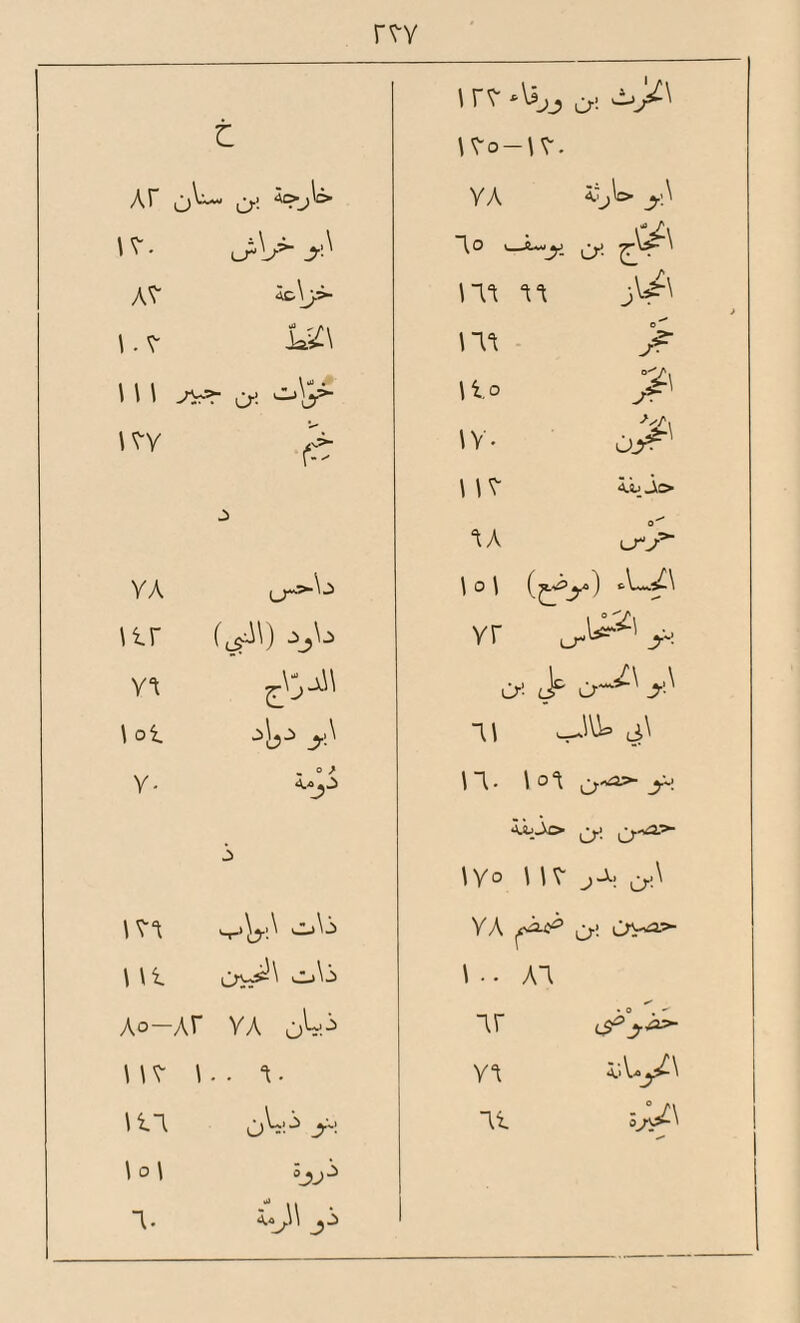 ٢٣٧
الحرث بن ورقاء ١٢٣
١٣٠–١٣٥
ابو حارثة ٧٨
الحجّاج بن يوسف ٦٥
الحجاز ٩٩ ١٦٩
حَجْر ١٦٩
الحَجْر ١٤٥
الحَجُون ١٧٠
حذيفة ١١٣
حَرْس ٩٨
الحساء (موضع) ١٥١
بنو الحَسْحاس ٧٢
ابو الحسن علي بن
ابى طالب ٦١
بنو حصن ١٥٩ ١٦٠
حصن بن حذيفة
ابن بدر ١١٣ ١٧٥
حصين بن ضمضم ٧٨
٨٦ ١٠٠
حَضَوْضَى ٦٢
الحومانة ٧٩
الحِيرْة ٦٤
خ
خارجة بن سنان ٨٢
ابو خراش ١٣٠
خزاعة ٨٣
الخَطّ ١٠٣
خوّات بن جبير ١١١
خِيَم ١٣٧
د
داحس ٧٨
داود (النبى) ١٤٢
الدرّاج ٧٩
ابو دواد ١٥٤
دُوْمة ٧٠
ذ
ذات ابواب ١٣٩
ذات ١١٤
ذبيان ٧٨ ٨٢–٨٥
٩٠ ١٠٠ ١١٣
بنو ذبيان ١٤٦
ذروة ١٥١
ذو الرمّة ٦٠